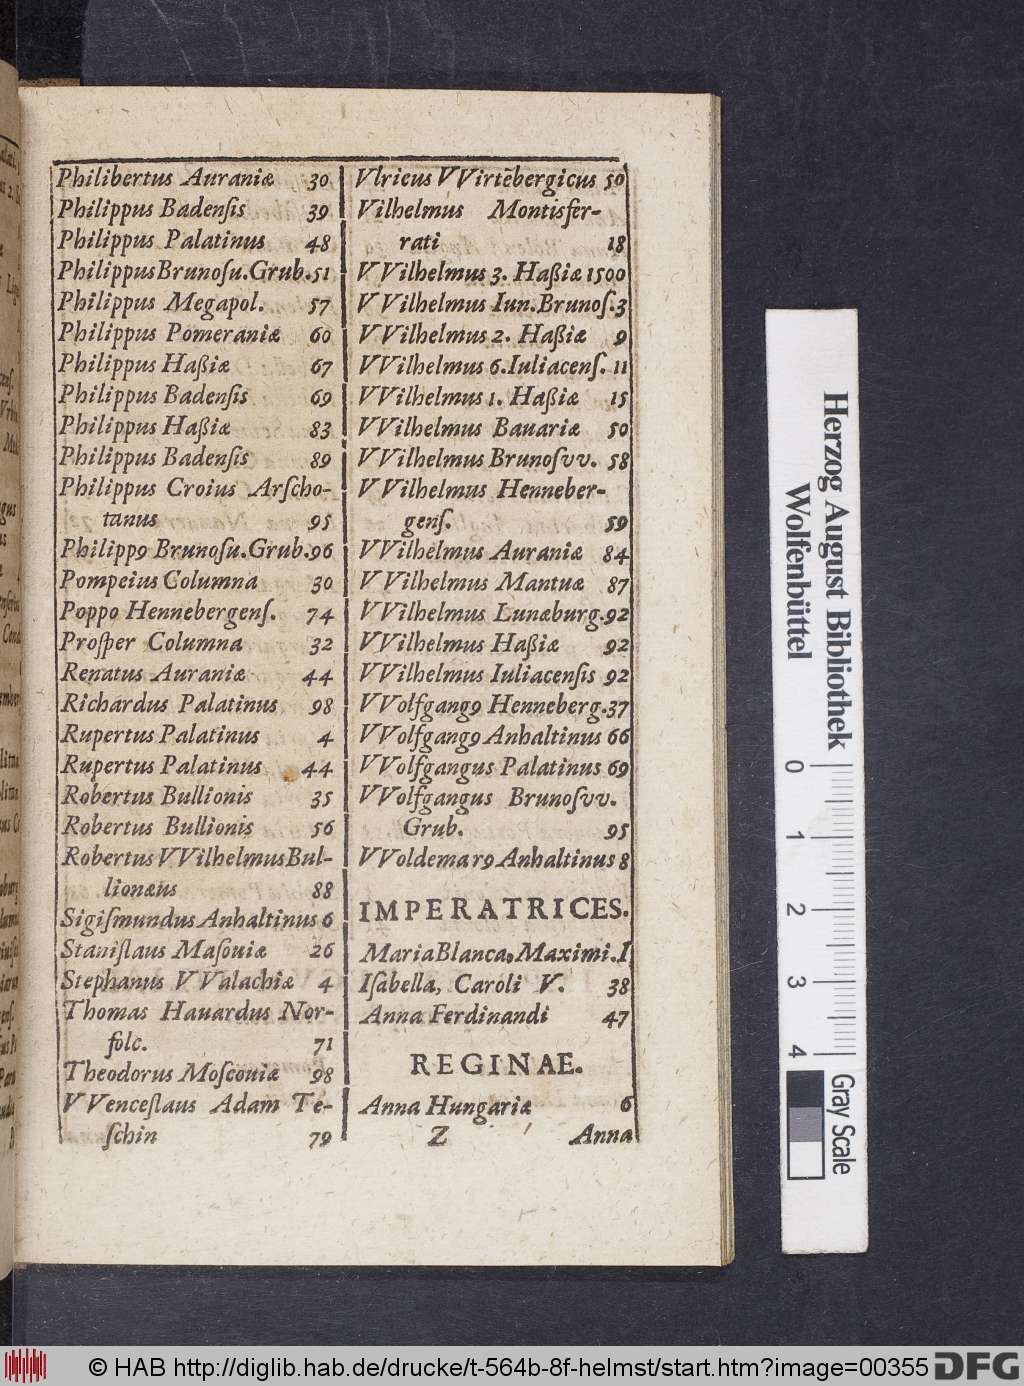 Philibertus Auraniæ 30
Philippus Badenſis 39
Philippus Palatinus 48
Philippus Brunoſu. Grub. 51
Philippus Megapol. 57
Philippus Pomeraniæ 60
Philippus Haßiæ 67
Philippus Badenſis 69
Philippus Haßiæ 83
Philippus Badenſis 89
Philippus Croius Arſcho-
tanus 95
Philipp9 Brunoſu. Grub. 96
Pompeius Columna 30
Poppo Hennebergenſ. 74
Proſper Columna 32
Renatus Auraniæ 44
Richardus Palatinus 98
Rupertus Palatinus 4
Rupertus Palatinus 44
Robertus Bullionis 35
Robertus Bullionis 56
Robertus VVilhelmus Bul-
lionæus 88
Sigiſmundus Anhaltinus 6
Staniſlaus Maſouiæ 26
Stephanus VValachiæ 4
Thomas Hauardus Nor-
folc. 71
Theodorus Moſcouiæ 98
VVenceſlaus Adam Te-
ſchin 79
Vlricus VVirtẽbergicus 50
Vilhelmus Montisfer-
rati 18
VVilhelmus 3. Haßiæ 1500
VVilhelmus Iun. Brunoſ. 3
VVilhelmus 2. Haßiæ 9
VVilhelmus 6. Iuliacenſ. 11
VVilhelmus 1. Haßiæ 15
VVilhelmus Bauariæ 50
VVilhelmus Brunoſvv. 58
VVilhelmus Henneber-
genſ. 59
VVilhelmus Auraniæ 84
VVilhelmus Mantuæ 87
VVilhelmus Lunæburg. 92
VVilhelmus Haßiæ 92
VVilhelmus Iuliacenſis 92
VVolfgang9 Henneberg. 37
VVolfgang9 Anhaltinus 66
VVolfgangus Palatinus 69
VVolfgangus Brunoſvv.
Grub. 95
VVoldemar9 Anhaltinus 8
IMPERATRICES.
Maria Blanca. Maximi. I
Iſabella, Caroli V. 38
Anna Ferdinandi 47
REGINAE.
Anna Hungariæ 6
Z Anna
Herzog August Bibliothek
Wolfenbüttel
0 1 2 3 4
Gray Scale
© HAB http://diglib.hab.de/drucke/t-564b-8f-helmst/start.htm?image=00355
DFG